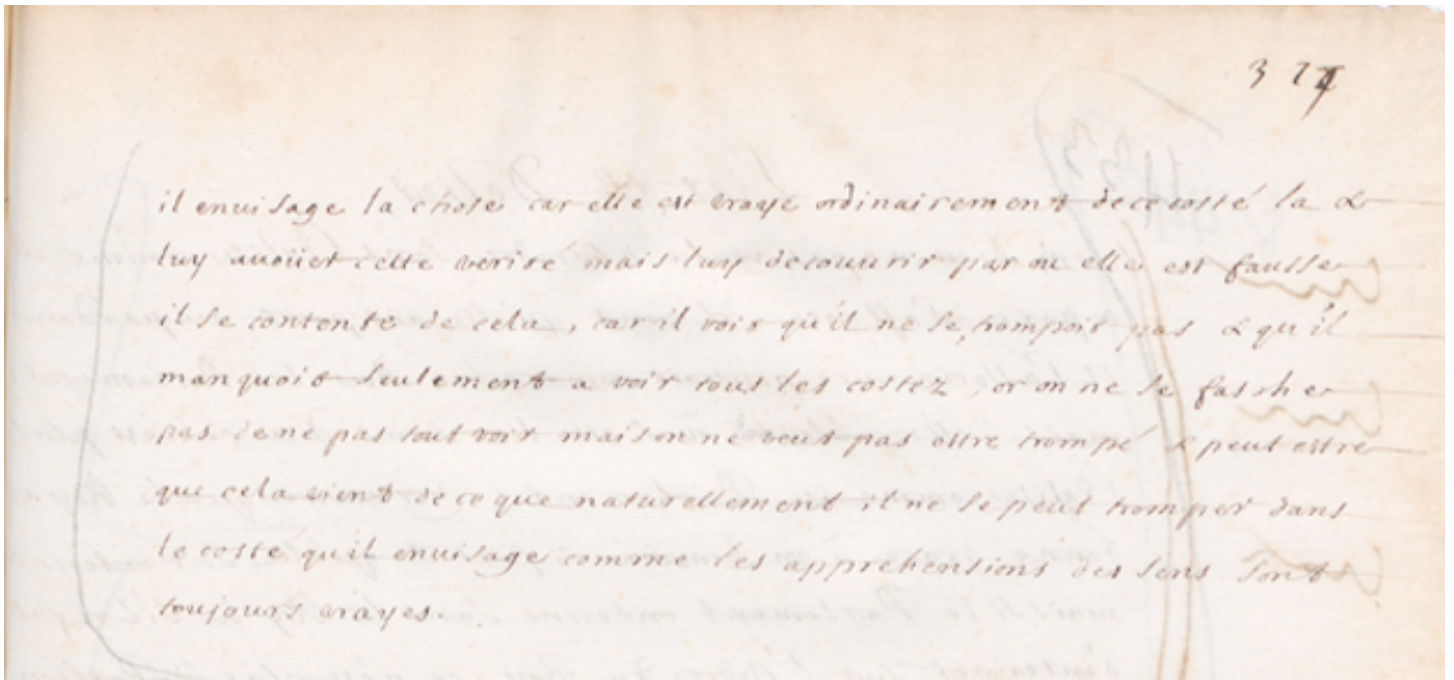 327
il enuisage la chose car elle est vraye ordinairement de ce costé la &
luy auoüer cette verité mais luy decouurir par ou elle est fausse
il se contente de cela, car il voit qu'il ne se trompoit pas & qu'il
manquoit seulement a voir tous les costez, or on ne se fasche
pas de ne pas tout voir mais on ne veut pas estre trompé & peut estre
que cela vient de ce que naturellement il ne se peut tromper dans
le costé qu'il enuisage comme les apprehensions des sens sont
toujours vrayes.